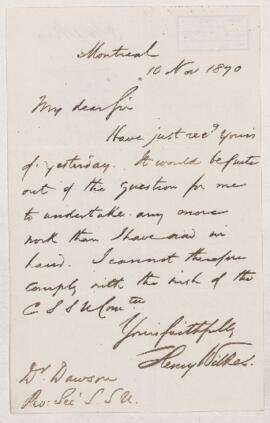 Montreal
10 Nov 1870
My dear Sir
Have just recd yours
of yesterday. It would be quite
out of the question for me
to undertake any more
work than I have now in
hand. I cannot therefore
comply with the wish of the
C S S U Comtee
Yours faithfully
Henry Wilkes.
Dr Dawson
Rec: Sec S S U.